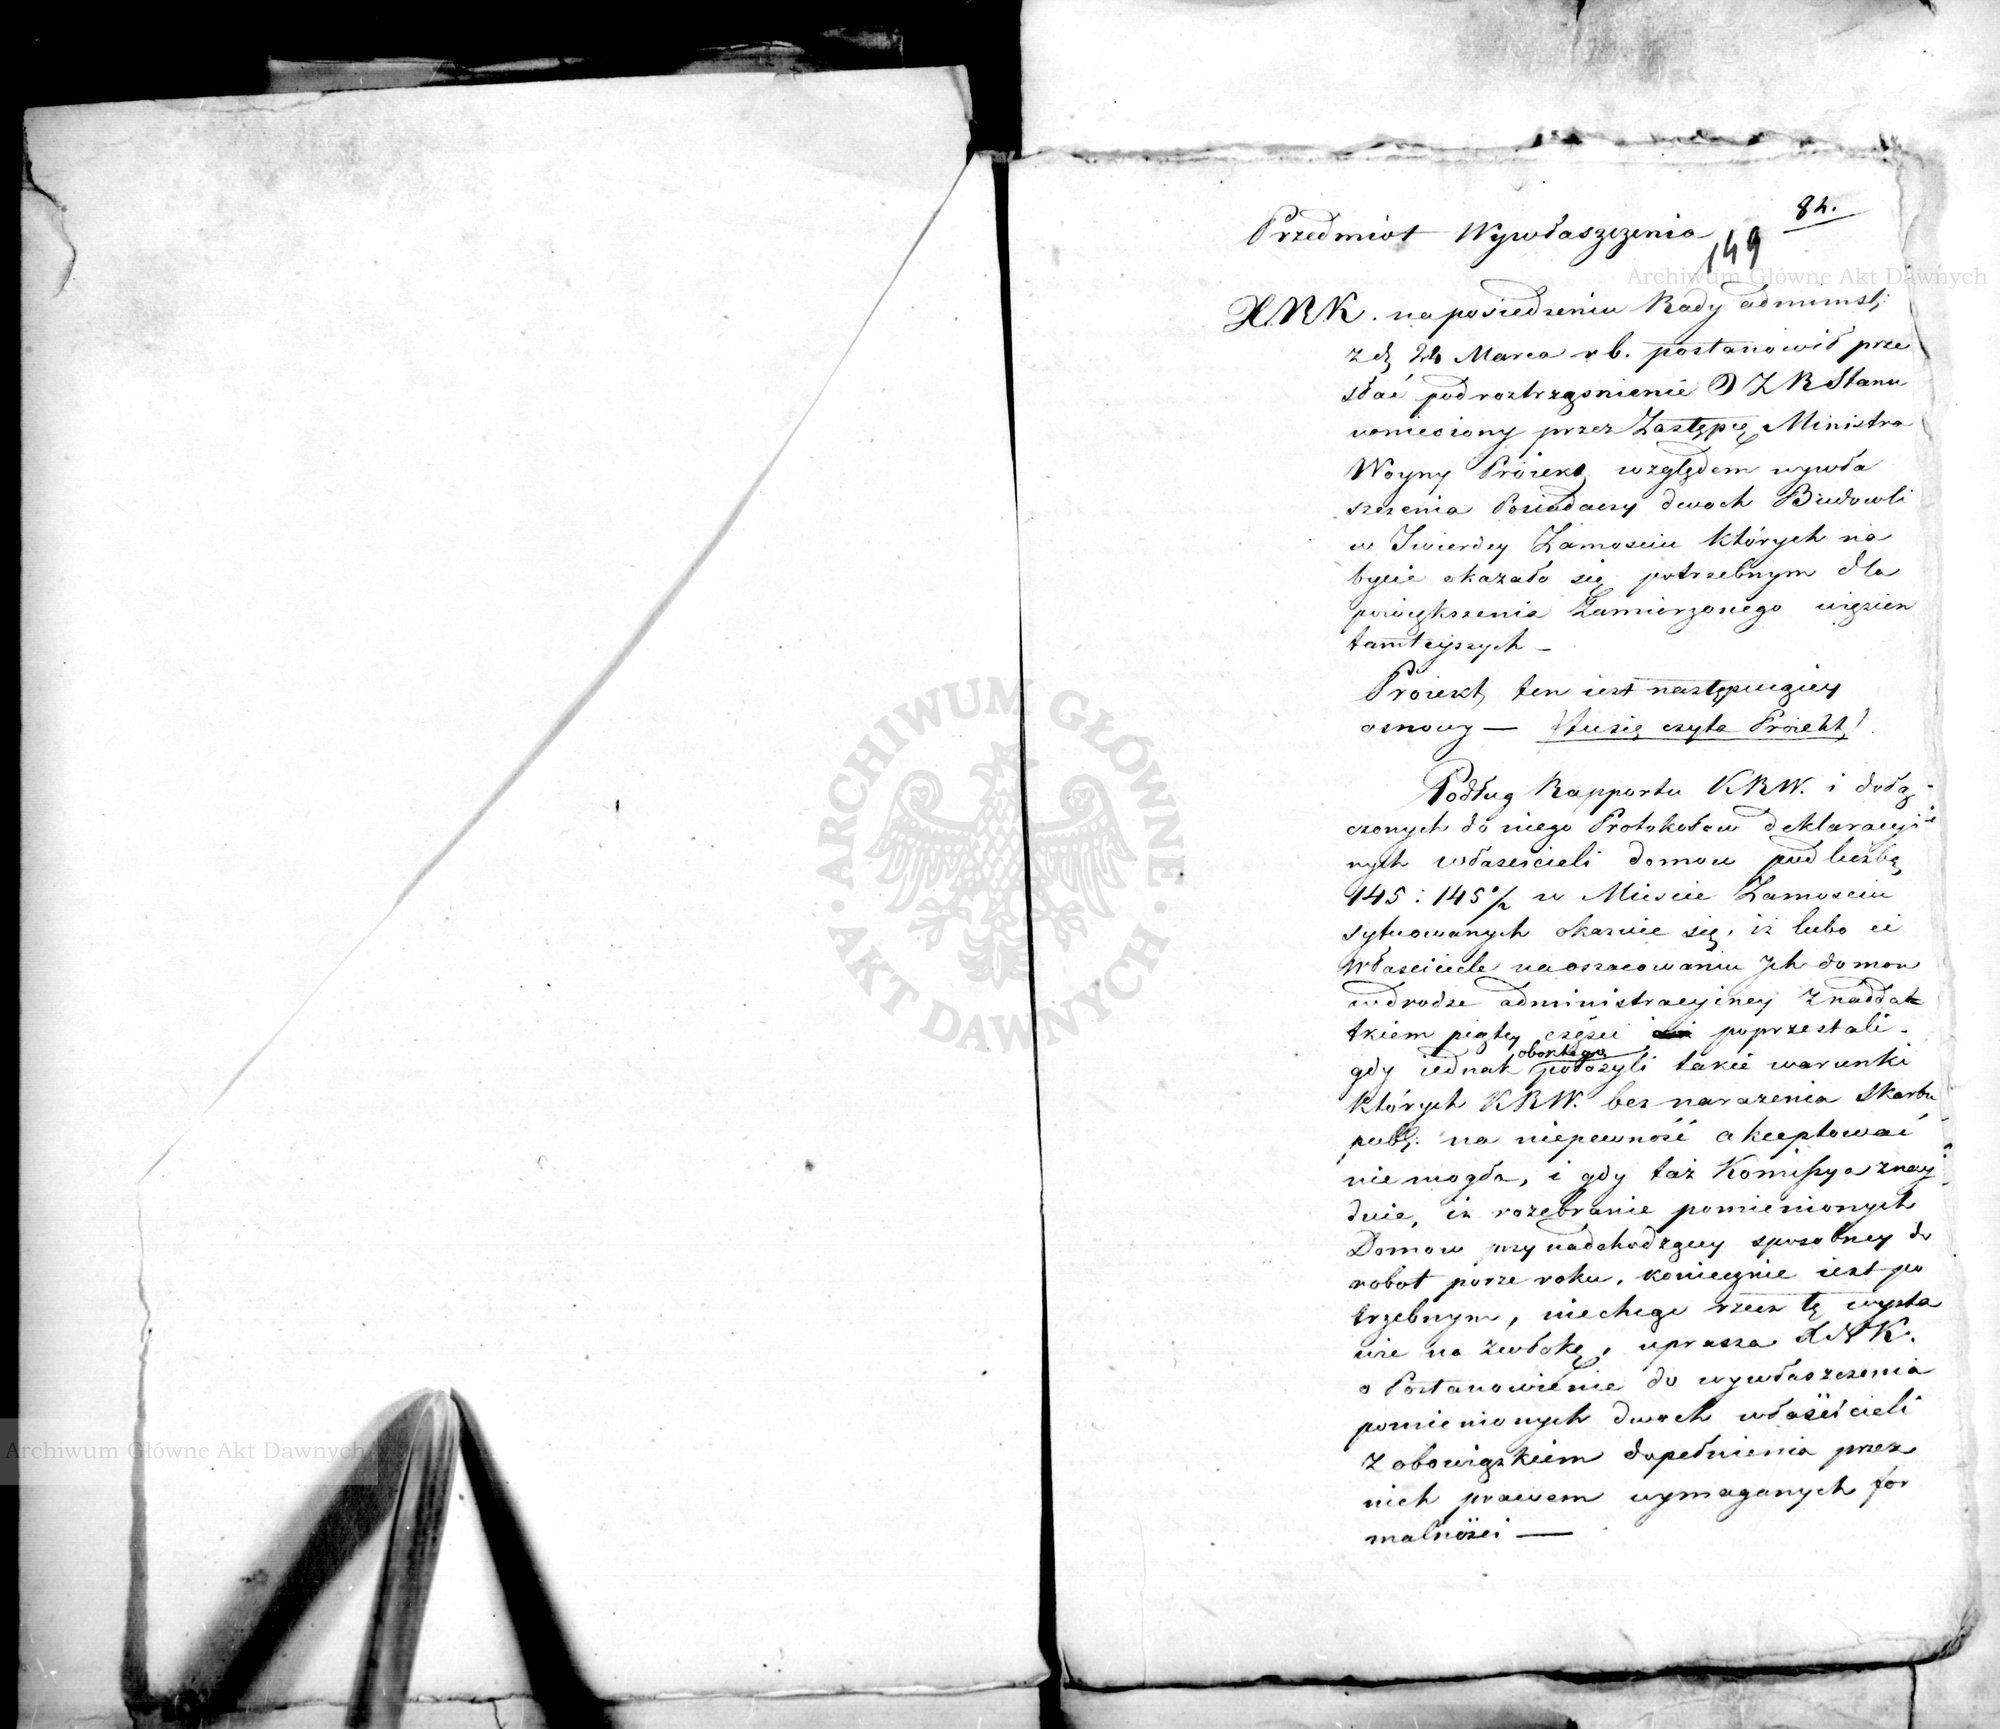 84.
Przedmiot Wywłaszczenia
149
X. N K. na posiedzeniu Rady administ:
z d. 24 Marca r b. postanowił prze
słać pod roztrzęsnienie O Z R Stanu
wniesiony przez Zastępcę Ministra
Woyny Proiekt względem wywła
szczenia Posiadaczy dwoch Budowli
w Twierdzy Zamosciu których na
bycie okazało się potrzebnym dla
powiększenia Zamierzonego więzien
tamteyszych —
Proiekt ten iest następuiącey
osnowy — /tu się czyta Proiekt/.
Podług Rapportu K R W. i dołą
czonych do niego Protokołow deklaracyi
nych właścicieli domow pod liczbą
145 : 145 a/2 w Miescie Zamosciu
sytuowanych okazuie się, iż lubo ci
Właściciele na oszacowaniu Ich domow
w drodze administracyiney z naddat
tkiem piątey częsci poprzestali –
gdy iednak obok tego położyli takie warunki
których K R W. bez narażenia Skarbu
publ: na niepewność akceptować
nie mogła, i gdy taż Komissya znay
duie, iż rozebranie pomienionych
Domow przy nadchodzącey sposobney do
robot porze roku, koniecznie iest po
trzebnym, niechcąc rzecz tę wysta
wić na zwłokę, uprasza X N K.
o Postanowienie do wywłaszczenia
pomienionych dwoch właścicieli
z obowiązkiem dopełnienia przez
nich prawem wymaganych for
malności —
Archiwum Główne Akt Dawnych
Archiwum Główne Akt Dawnych
ARCHIWUM GŁÓWNE
· AKT DAWNYCH ·